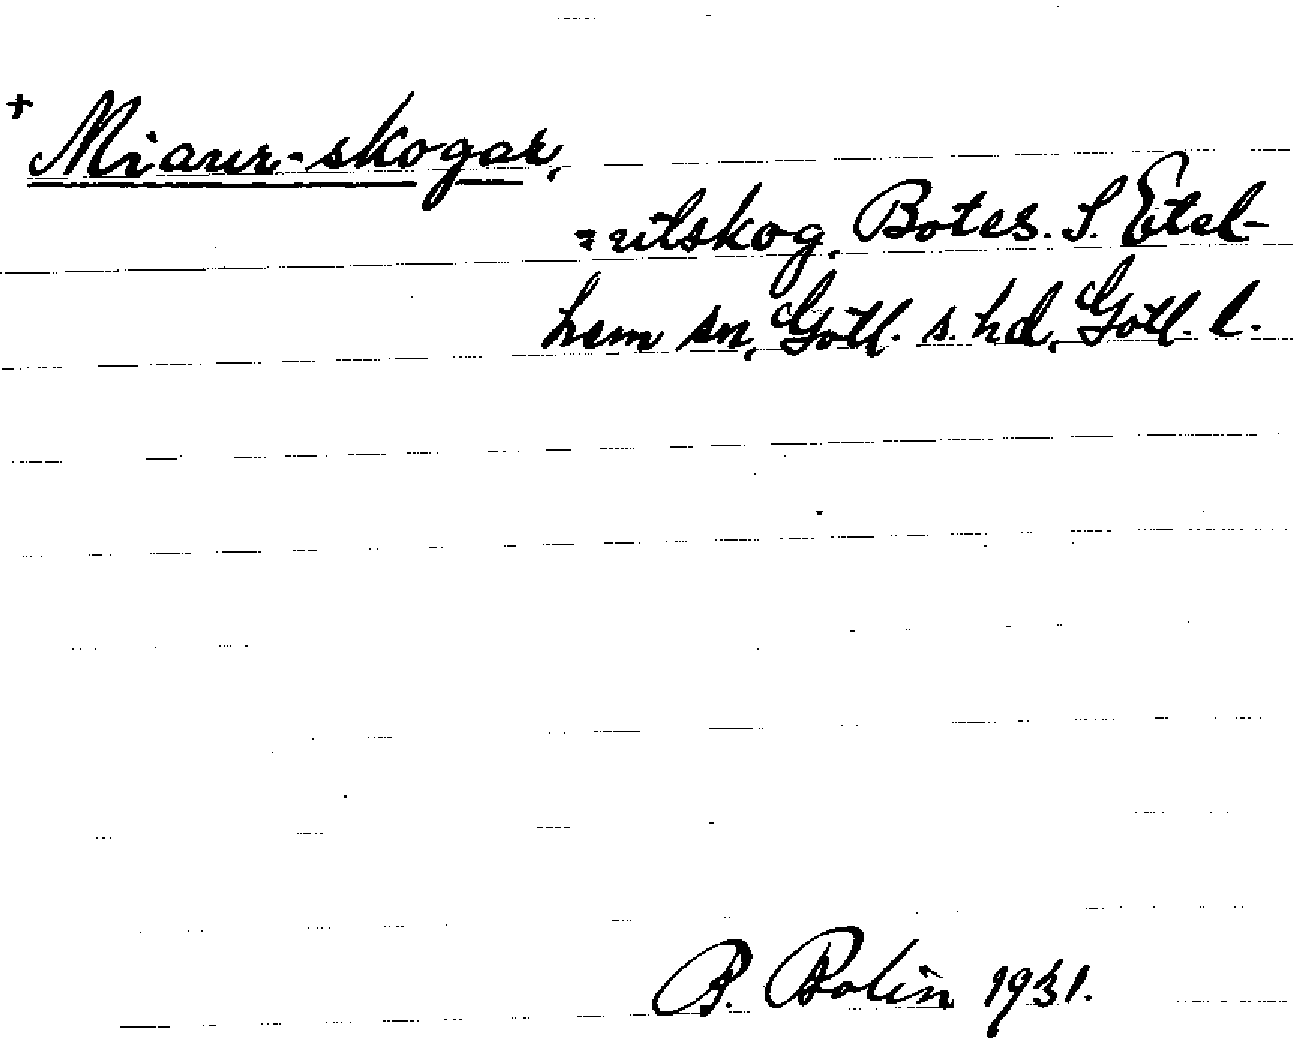 + Miaur-skogar,
= utskog, Botes. S. Etel-
hem sn, Gotl. s. hd, Gotl. l.
B. Bolin 1931.